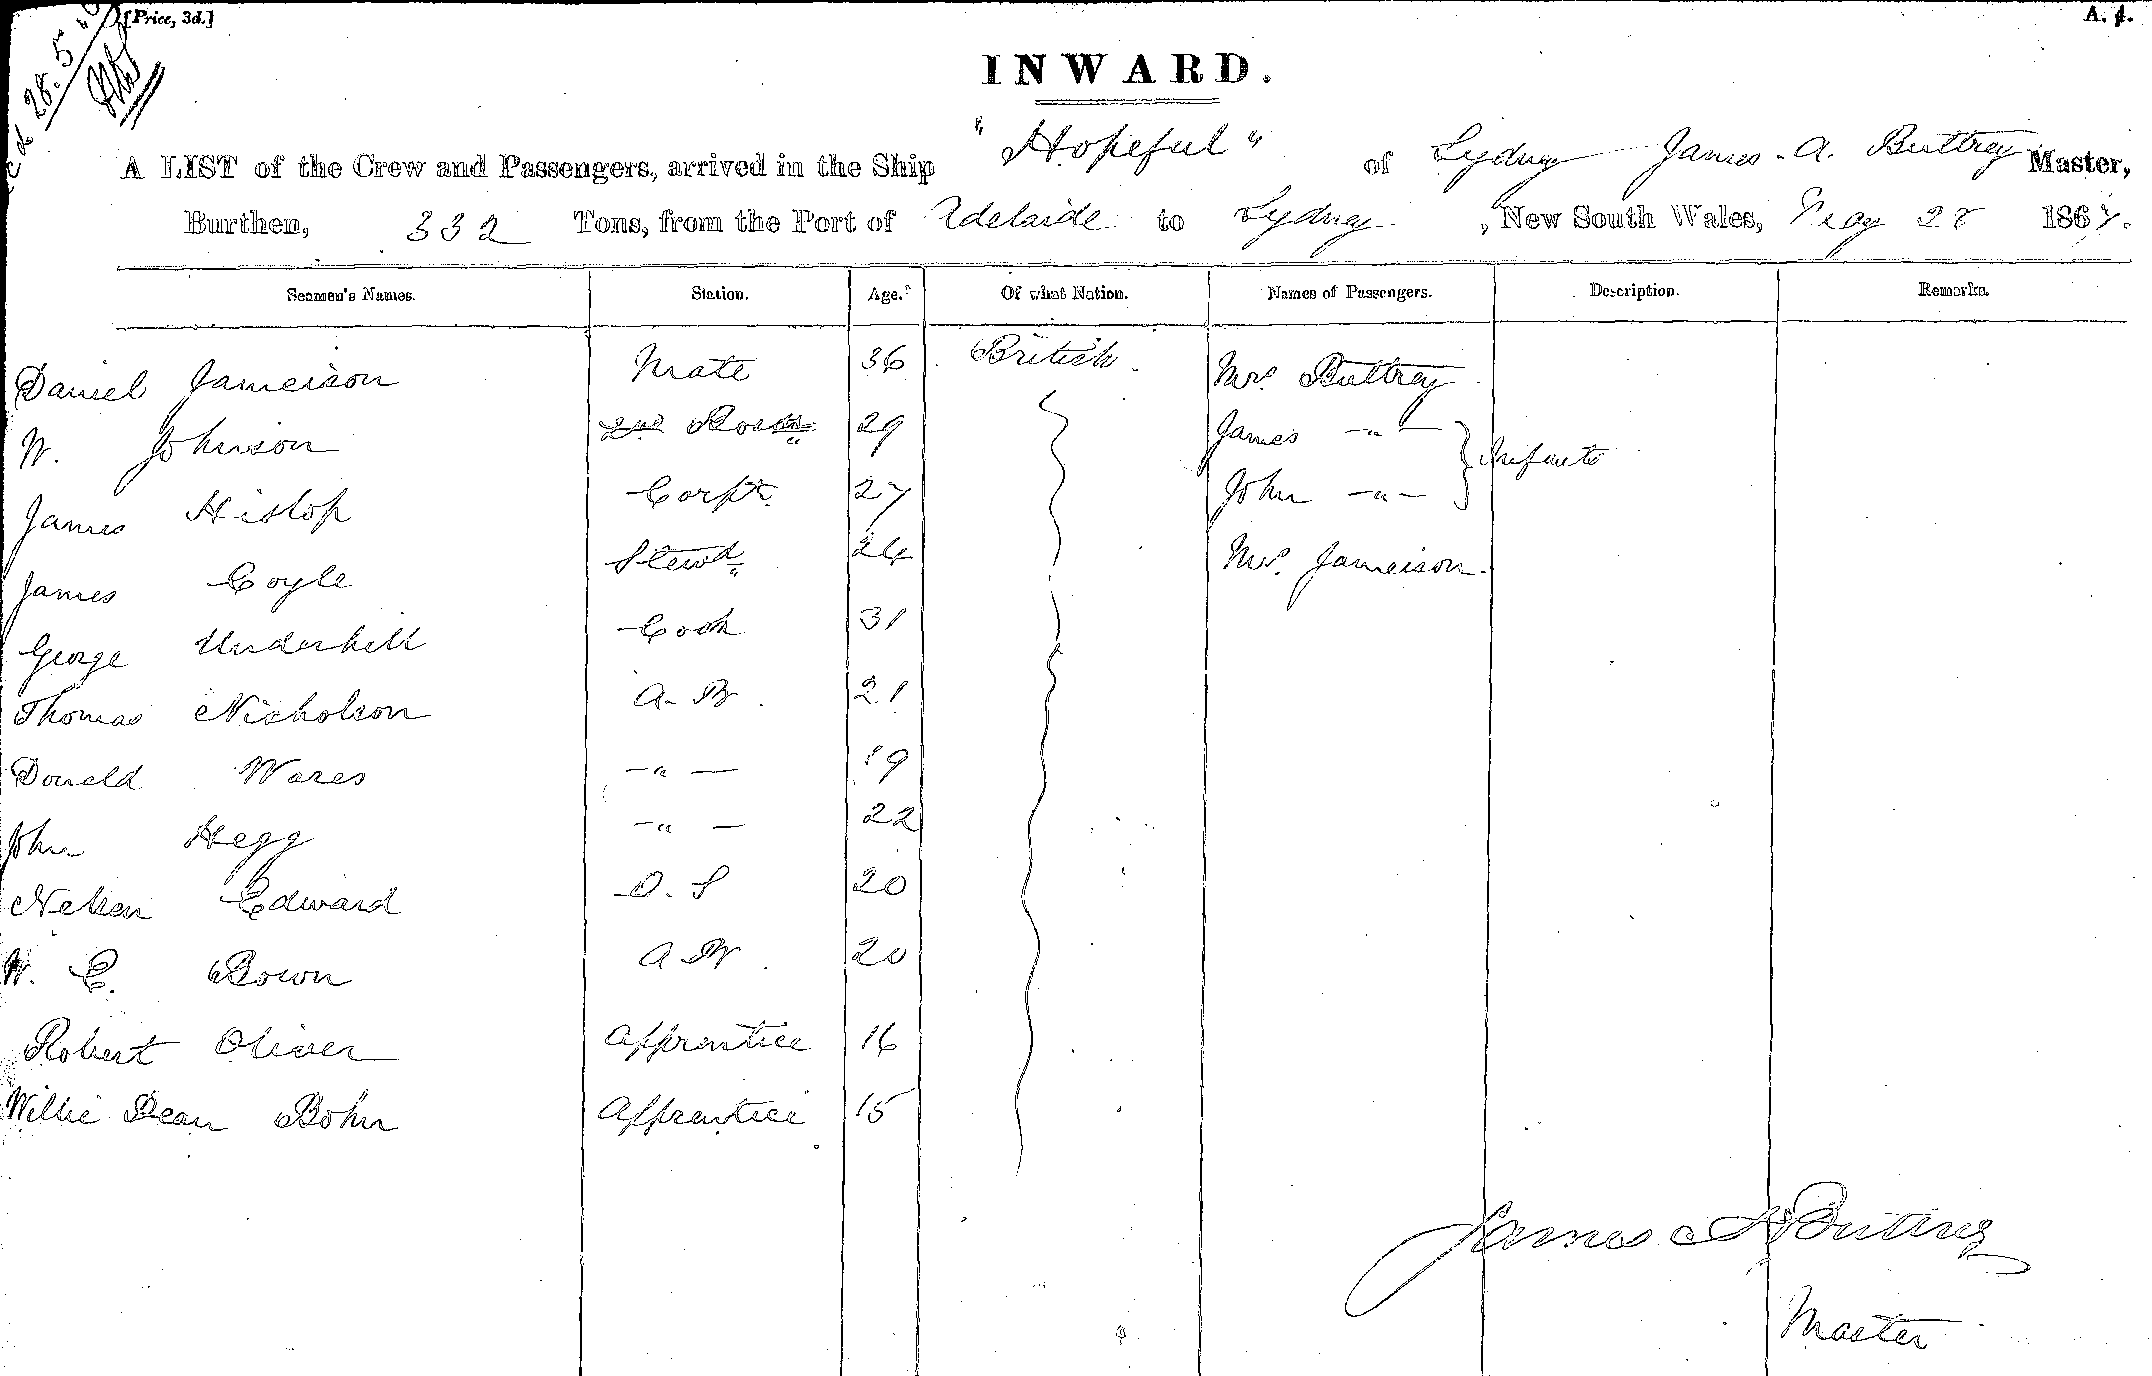 [Price, 3d.] A. 4.
28. 5
INWARD.
A LIST of the Crew and Passengers, arrived in the Ship "Hopeful" of Sydney James. A. Buttrey Master,
Burthen, 332 Tons, from the Port of Adelaide to Sydney, New South Wales, May 28 1867.
Seamen's Names. Station. Age. Of what Nation. Names of Passengers. Description. Remarks.
Daniel Jameison Mate 36 British Mrs. Buttrey
W. Johnson 29 James -"- } Infants
James Hislop Corptr. 27 John -"-
James Coyle Stewd. 24 Mrs. Jameison.
George Underhill Cook 31
Thomas Nicholson A. B. 21
Donald Wares -"- 19
John Hegg -"- 22
Nelson Edward O. S 20
W. C. Bown A B 20
Robert Oliver Apprentice 16
Willie Dean Bohn Apprentice 15
James A Buttrey
Master